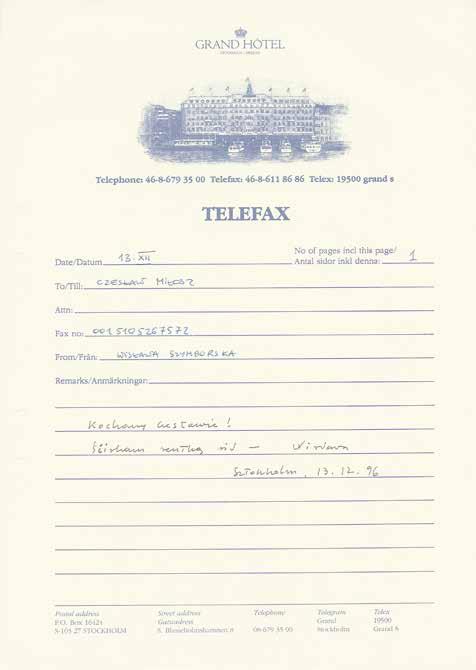 GRAND HÔTEL
STOCKHOLM · SWEDEN
Telephone: 46-8-679 35 00 Telefax: 46-8-611 86 86 Telex: 19500 grand s
TELEFAX
Date/Datum 13. XII
No of pages incl this page/
Antal sidor inkl denna: 1
To/Till: CZESŁAW MIŁOSZ
Attn:
Fax no: 0015105267572
From/Från: WISŁAWA SZYMBORSKA
Remarks/Anmärkningar:
Kochany Czesławie!
Ściskam
Sztokholm, 13.12.96
Postal address Street address Telephone Telegram Telex
Gatuadress Grand 19500
P.O. Box 16424 S. Blasieholmshamnen 8 08-679 35 00 Stockholm Grand S
S-103 27 STOCKHOLM